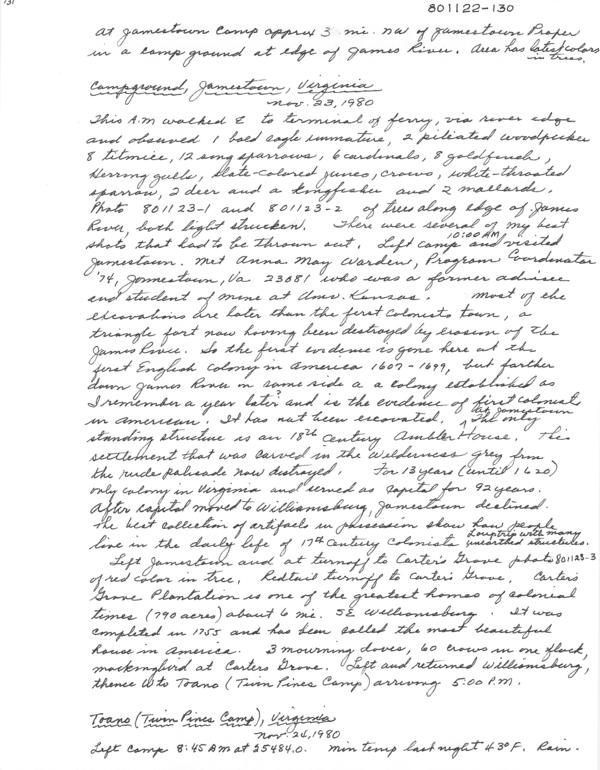 131
801122-130
At Jamestown Camp approx 3 mi. NW of Jamestown Proper
in a camp ground at edge of James River. Area has latest colors
in trees.
Campground, Jamestown, Virginia
Nov. 23, 1980
This A.M walked E to terminal of ferry, via river edge
and observed 1 bald eagle immature, 2 pileated woodpecker
8 titmice, 12 song sparrows, 6 cardinals, 8 goldfinch,
Herring gulls, slate-colored junco, crows, white-throated
sparrow, 2 deer and a kingfisher and 2 mallards.
Photo 801123-1 and 801123-2 of trees along edge of James
River, both light strucken. There were several of my best
shots that had to be thrown out. Left camp 10:00 AM and visited
Jamestown. Met Anna May Warden, Program Coordinator
'74, Jamestown, Va 23081 who was a former advisee
and student of mine at Univ. Kansas. Most of the
excavations are later than the first Colonists town, a
triangle fort now having been destroyed by erosion of the
James River. So the first evidence is gone here at the
first English Colony in America 1607-1699, but farther
down James River on same side a a colony established as
I remember a year later? and is the evidence of first colonist
in american. It has not been excavated. The only at Jamestown
standing structure is an 18th Century Ambler House. The
settlement that was carved in the wilderness grey from
the rude palisade now destroyed. For 13 years (until 1620)
only colony in Virginia and served as capital for 92 years.
After capital moved to Williamsburg, Jamestown declined.
The best collection of artifacts in possession show how people
live in the daily life of 17th Century Colonists. Loop trip with many
unearthed structures.
Left Jamestown and at turnoff to Carter's Grove photo 801123-3
of red color in tree. Redtail turnoff to Carter's Grove. Carter's
Grove Plantation is one of the greatest homes of colonial
times (790 acres) about 6 mi. SE Williamsburg. It was
completed in 1755 and has been called the most beautiful
house in America. 3 mourning doves, 60 crows in one flock,
mockingbird at Carters Grove. Left and returned Williamsburg,
thence W to Toano (Twin Pines Camp) arriving 5:00 P.M.
Toano (Twin Pines Camp), Virginia
Nov. 24, 1980
Left Camp 8:45 AM at 25484.0. Min temp last night 43°F. Rain.